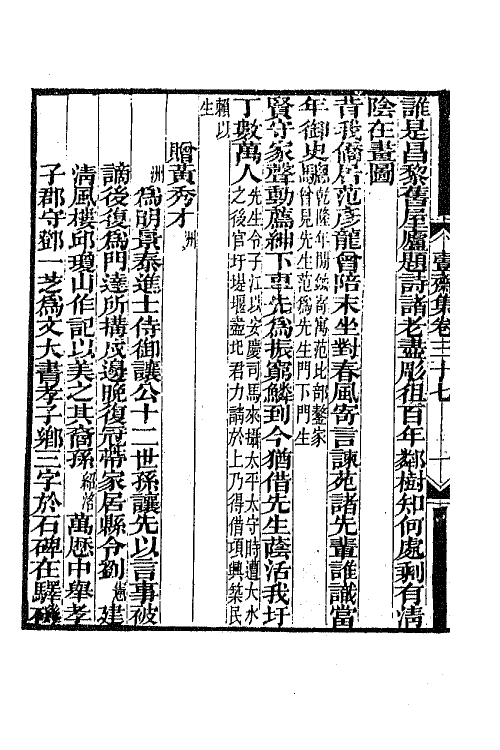 壹齋集卷三十七
誰是昌黎舊屋廬題詩諸老盡彫徂百年鄰樹知何處剩有淸
陰在畫圖
昔我僑居范彥龍曾陪末坐對春風寄言諫苑諸先輩誰識當
年御史驄乾隆年間余寄寓范比部鏊家曾見先生范為先生門下門生
賢守家聲動薦紳下車先為振窮鱗到今猶借先生蔭活我圩
丁數萬人先生令子江以安慶司馬來攝太平太守時遭大水之後官圩堤堰盡圮君力請於上乃得借項興築民
賴以
生
贈黃秀才洲
洲為明景泰進士侍御讓公十二世孫讓先以言事被
謫後復為門達所搆戍邊晚復冠帶家居縣令劉憲建
淸風樓邱瓊山作記以美之其裔孫萬歷中舉孝
子郡守鄧一芝為文大書孝子鄉三字於石碑在驛磯